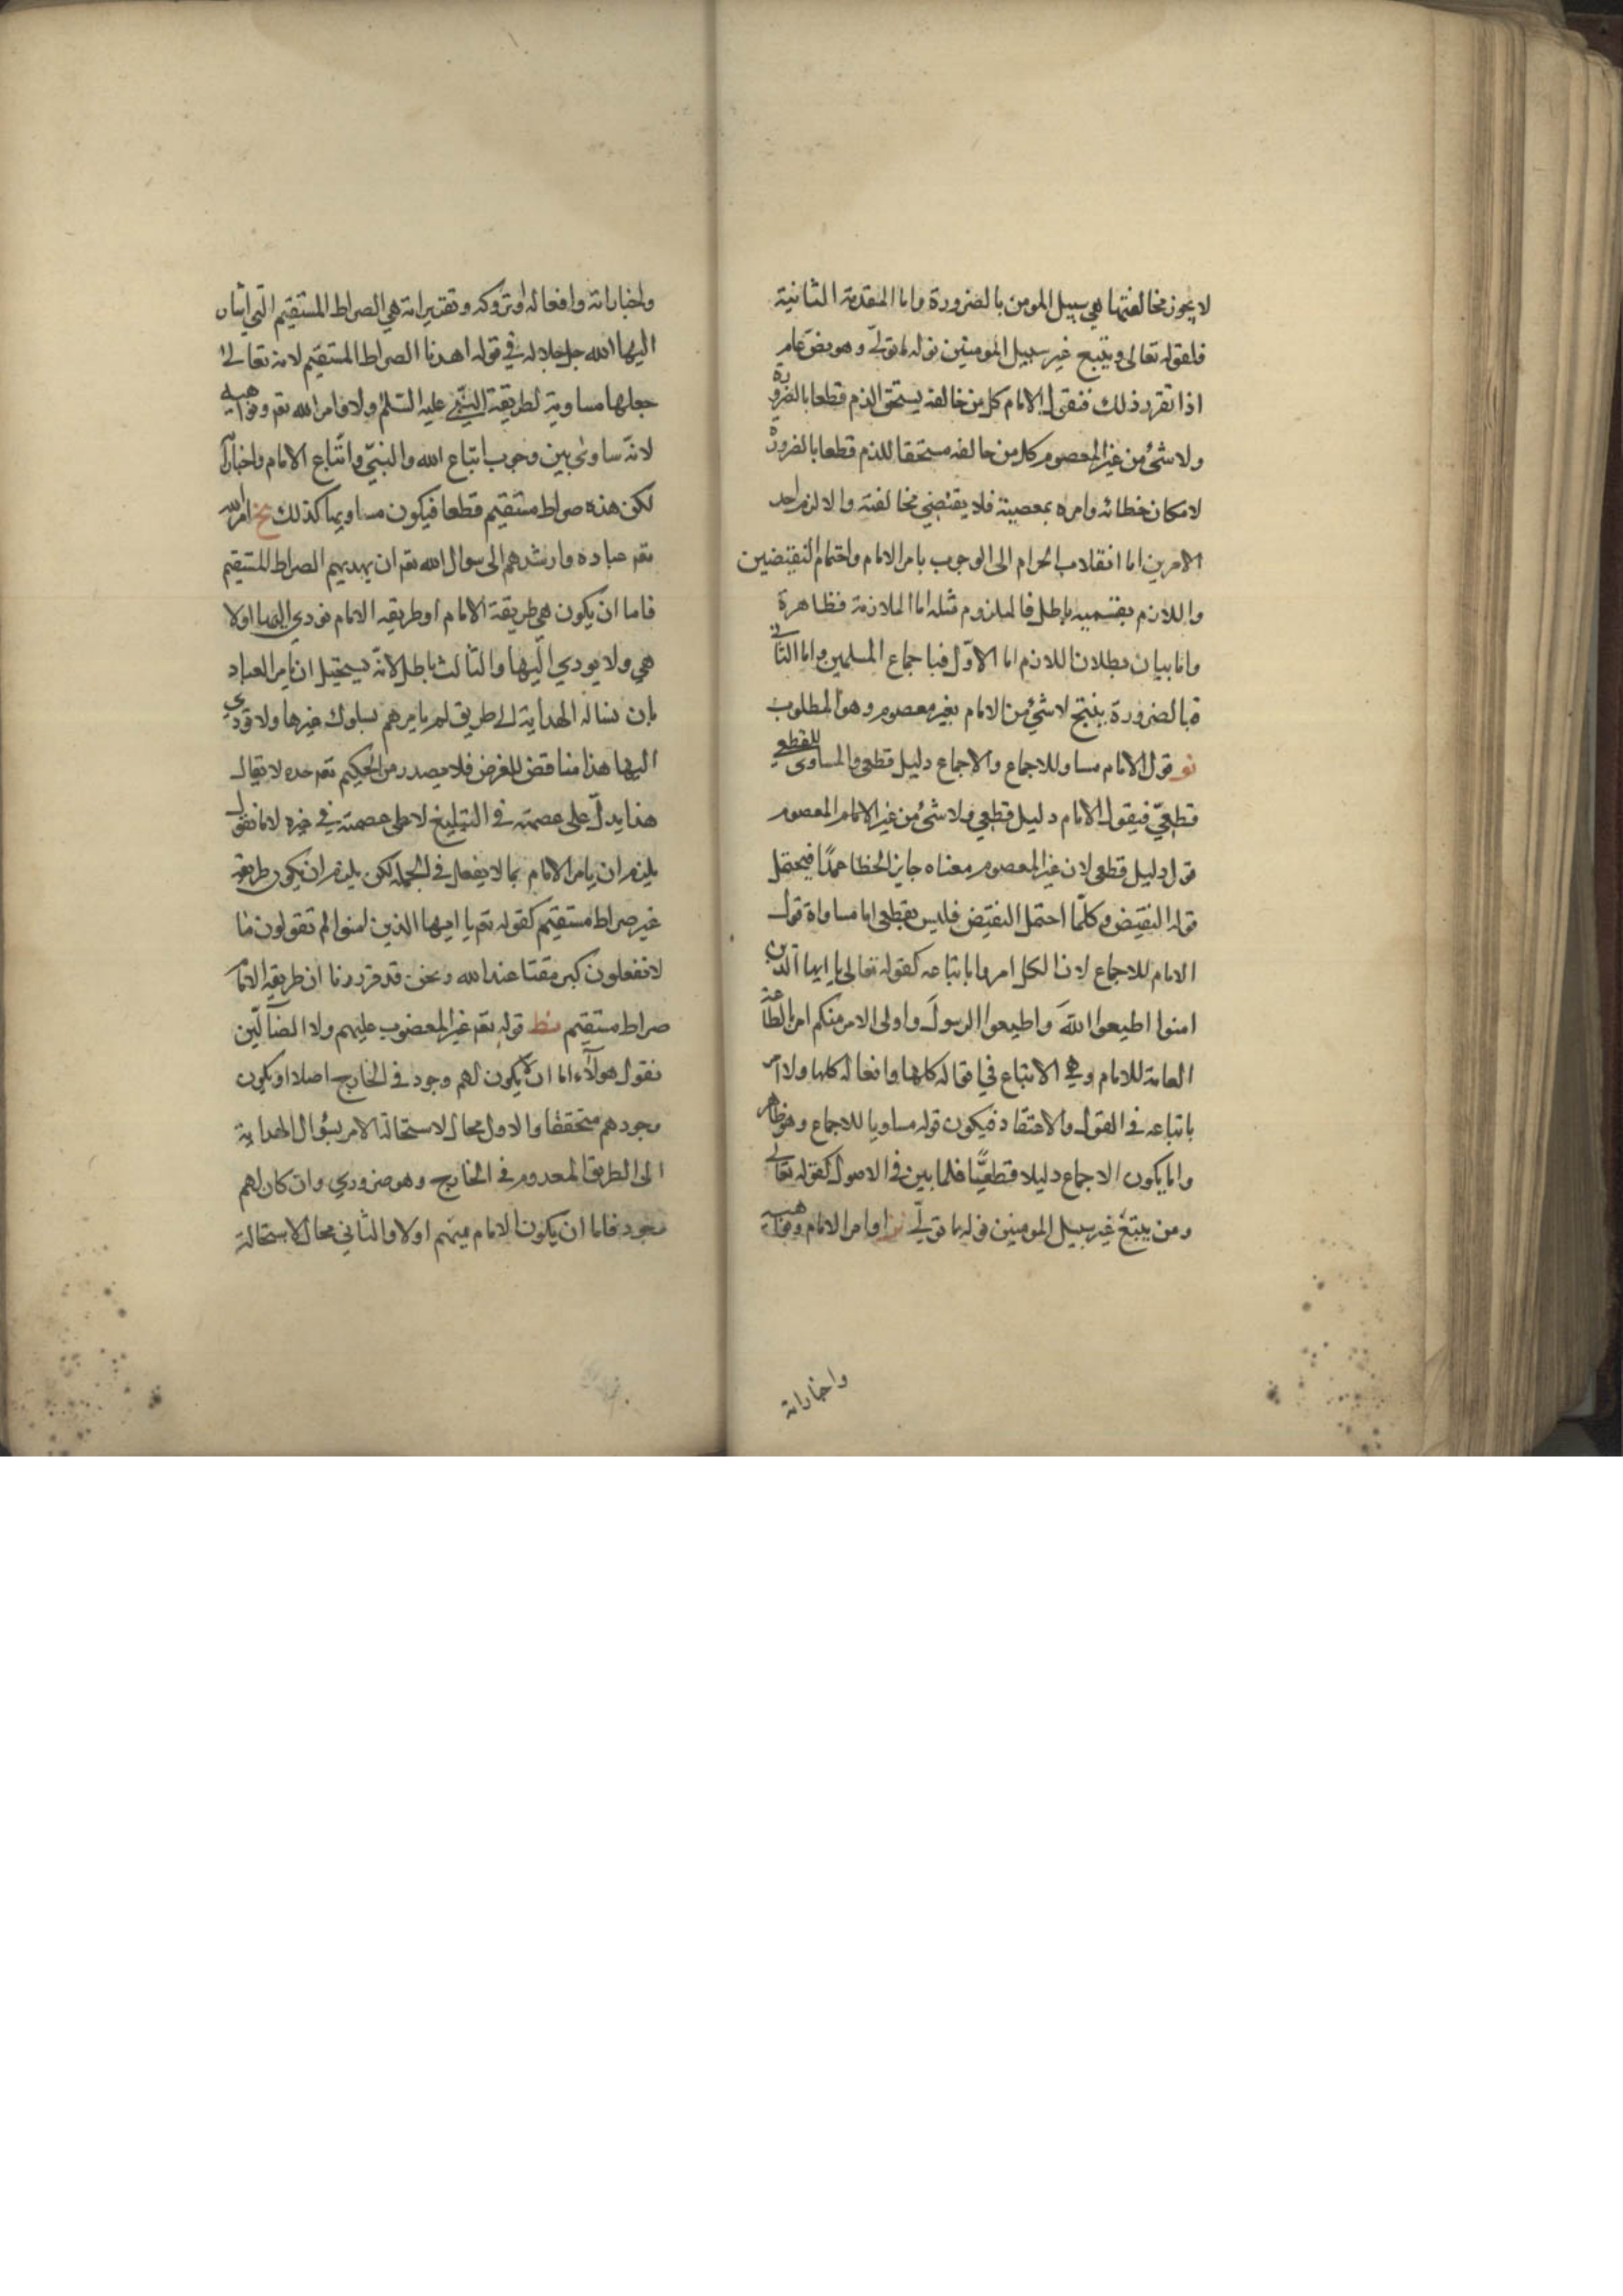 لا يجوز مخالفتها هي سبيل المومن بالضرورة واما المقدمة الثانية
فلقوله تعالى ويتبع غير سبيل المومنين نوله ما تولى وهو نص عام
اذا تقرر ذلك فنقول الامام كل من خالفه يستحق الذم قطعا بالضرورة
ولا شئ من غير المعصوم كل من خالفه مستحقا للذم قطعا بالضرورة
لامكان خطائه وامره بمعصية فلا يقتضي مخالفته والا لزم احد
الامرين اما انقلاب الحرام الى الوجوب بامر الامام واجتماع النقيضين
واللازم بقسميه باطل فالملزوم مثله اما الملازمة فظاهرة
واما بيان بطلان اللازم اما الاول فباجماع المسلمين واما الثاني
فبالضرورة ينتج لا شئ من الامام بغير معصوم وهو المطلوب
نو قول الامام مساو للاجماع والاجماع دليل قطعي والمساوى للقطعي
قطعي فيقول الامام دليل قطعي ولا شئ من غير الامام المعصوم
قول دليل قطعى لان غير المعصوم معناه جايز الخطا عمدا فيحتمل
قوله النقيض وكلما احتمل النقيض فليس بقطعى اما مساواة قول
الامام للاجماع لان الكل امروا باتباعه كقوله تعالى يا ايها الذين
امنوا اطيعوا الله واطيعوا الرسول واولى الامر منكم امر بالطاعة
العامة للامام وهي الاتباع في اقواله كلها وافعاله كلها ولا امر
باتباعه في القول والاعتقاد فيكون قوله مساويا للاجماع وهو ظاهر
واما يكون الاجماع دليلا قطعيا فلما بين في الاصول كقوله تعالى
ومن يبتغ غير سبيل المومنين نوله ما تولى نز اوامر الامام ونواهيه
واخباراته
واخباراته وافعاله وتروكه وتقريراته هي الصراط المستقيم التي اشار
اليها الله جل جلاله في قوله اهدنا الصراط المستقيم لانه تعالى
جعلها مساوية لطريقة النبي عليه السلم ولاوامر الله تعم ونواهيه
لانه ساوى بين وجوب اتباع الله والنبي واتباع الامام واخباره
لكن هذه صراط مستقيم قطعا فيكون مساويها كذلك نح امر الله
تعم عباده وارشدهم الى سوال الله تعم ان يهديهم الصراط المستقيم
فاما ان يكون هي طريقة الامام او طريقه الامام مودي اليها او لا
هي ولا يودي اليها والثالث باطل لانه يستحيل ان يامر العباد
بان نساله الهداية الى طريق لم يامرهم بسلوك غيرها ولا تودي
اليها هذا مناقض للغرض فلا يصدر من الحكيم تعم حده لا يقال
هذا يدل على عصمته في التبليغ لا على عصمته في غيره لانا نقول
يلزم ان يامر الامام بما لا يفعل في الجملة لكن يلزم ان يكون طريقه
غير صراط مستقيم كقوله تعم يا ايها الذين امنوا لم تقولون ما
لا تفعلون كبر مقتا عند الله ونحن قد قررنا ان طريقه الامام
صراط مستقيم نط قوله تعم غير المغضوب عليهم ولا الضالين
نقول هولاء اما ان لا يكون لهم وجود في الخارج اصلا او يكون
وجودهم متحققا والاول محال لاستحالة الامر بسؤال الهداية
الى الطريق المعدوم في الخارج وهو ضروري وان كان لهم
وجود فاما ان يكون الامام منهم او لا والثاني محال لاستحالة